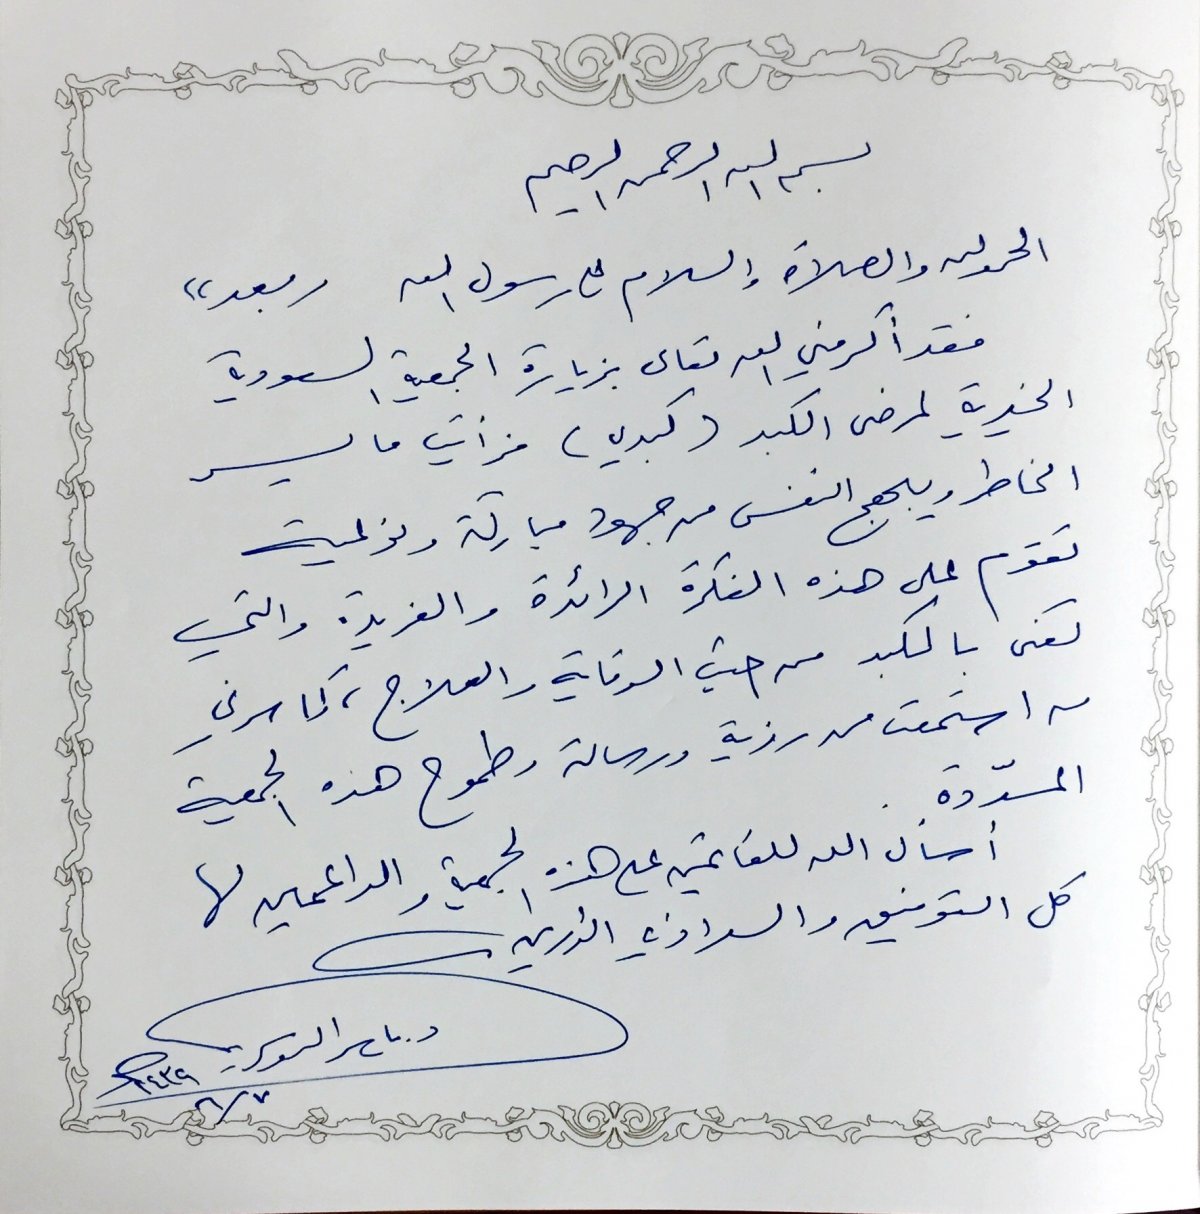 بسم الله الرحمن الرحيم
الحمد لله والصلاة والسلام على رسول الله وبعد،،
فقد أكرمني الله تعالى بزيارة الجمعية السعودية
الخيرية لمرضى الكبد (كبدي) فرأيت ما يسر
الخاطر ويبهج النفس من جهود مباركة ونوعية
تقوم على هذه الفكرة الرائدة والفريدة والتي
تعنى بالكبد من حيث الوقاية والعلاج، كما سرني
ما استمعت من رؤية ورسالة وطموح هذه الجمعية
المسددة
أسأل الله للقائمين على هذه الجمعية والداعمين لها
كل التوفيق والسداد في الدارين
د. ماهر
١٤٣٩